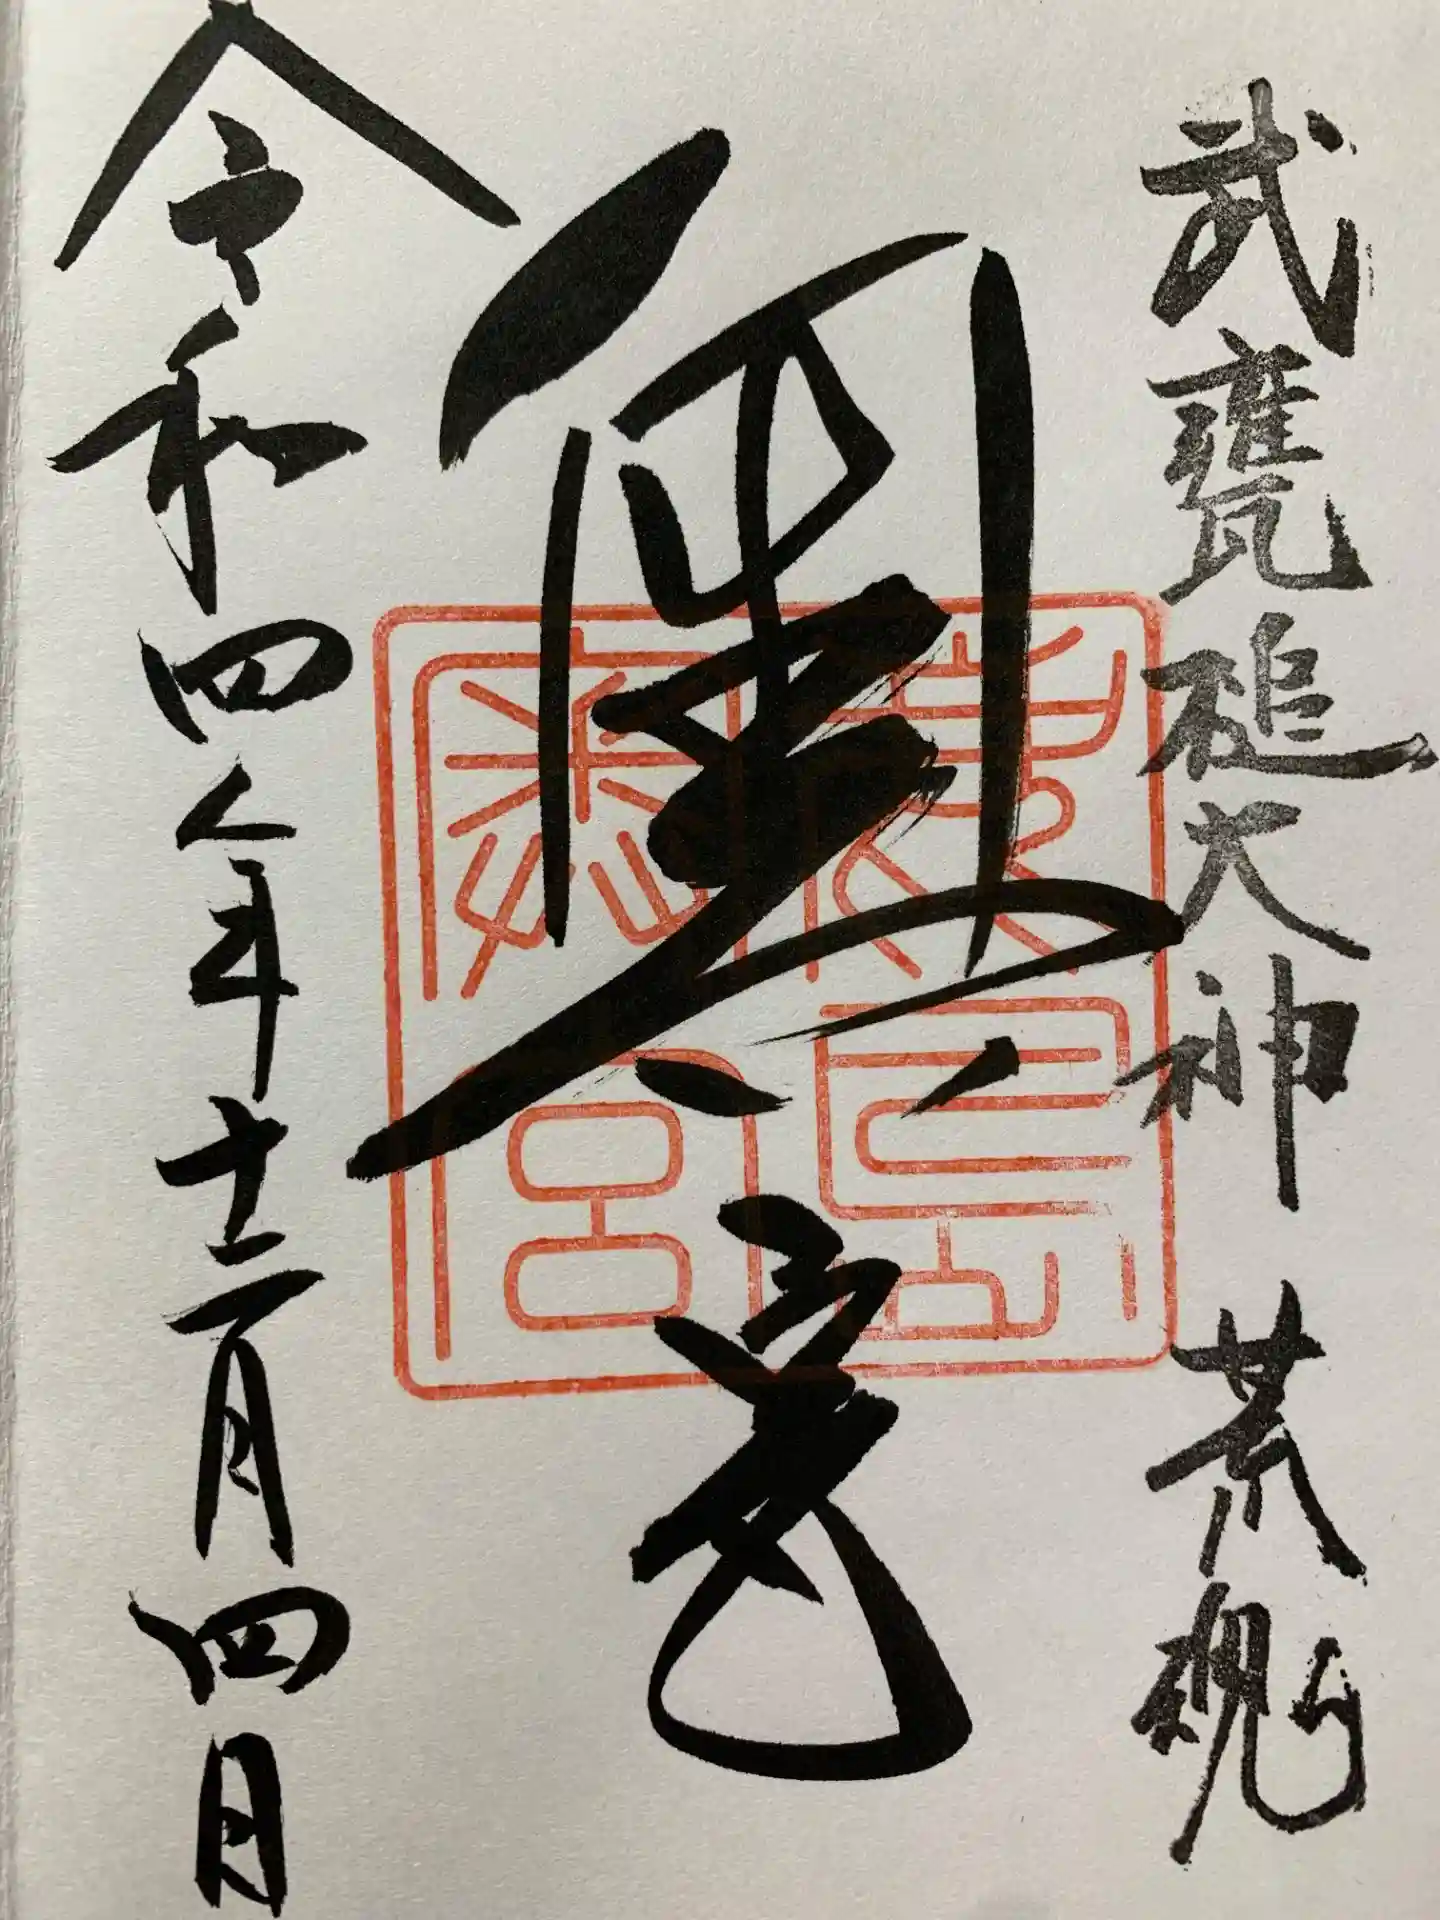 武甕槌大神 荒魂
奥宮
鹿島奥宮
令和四年十二月四日